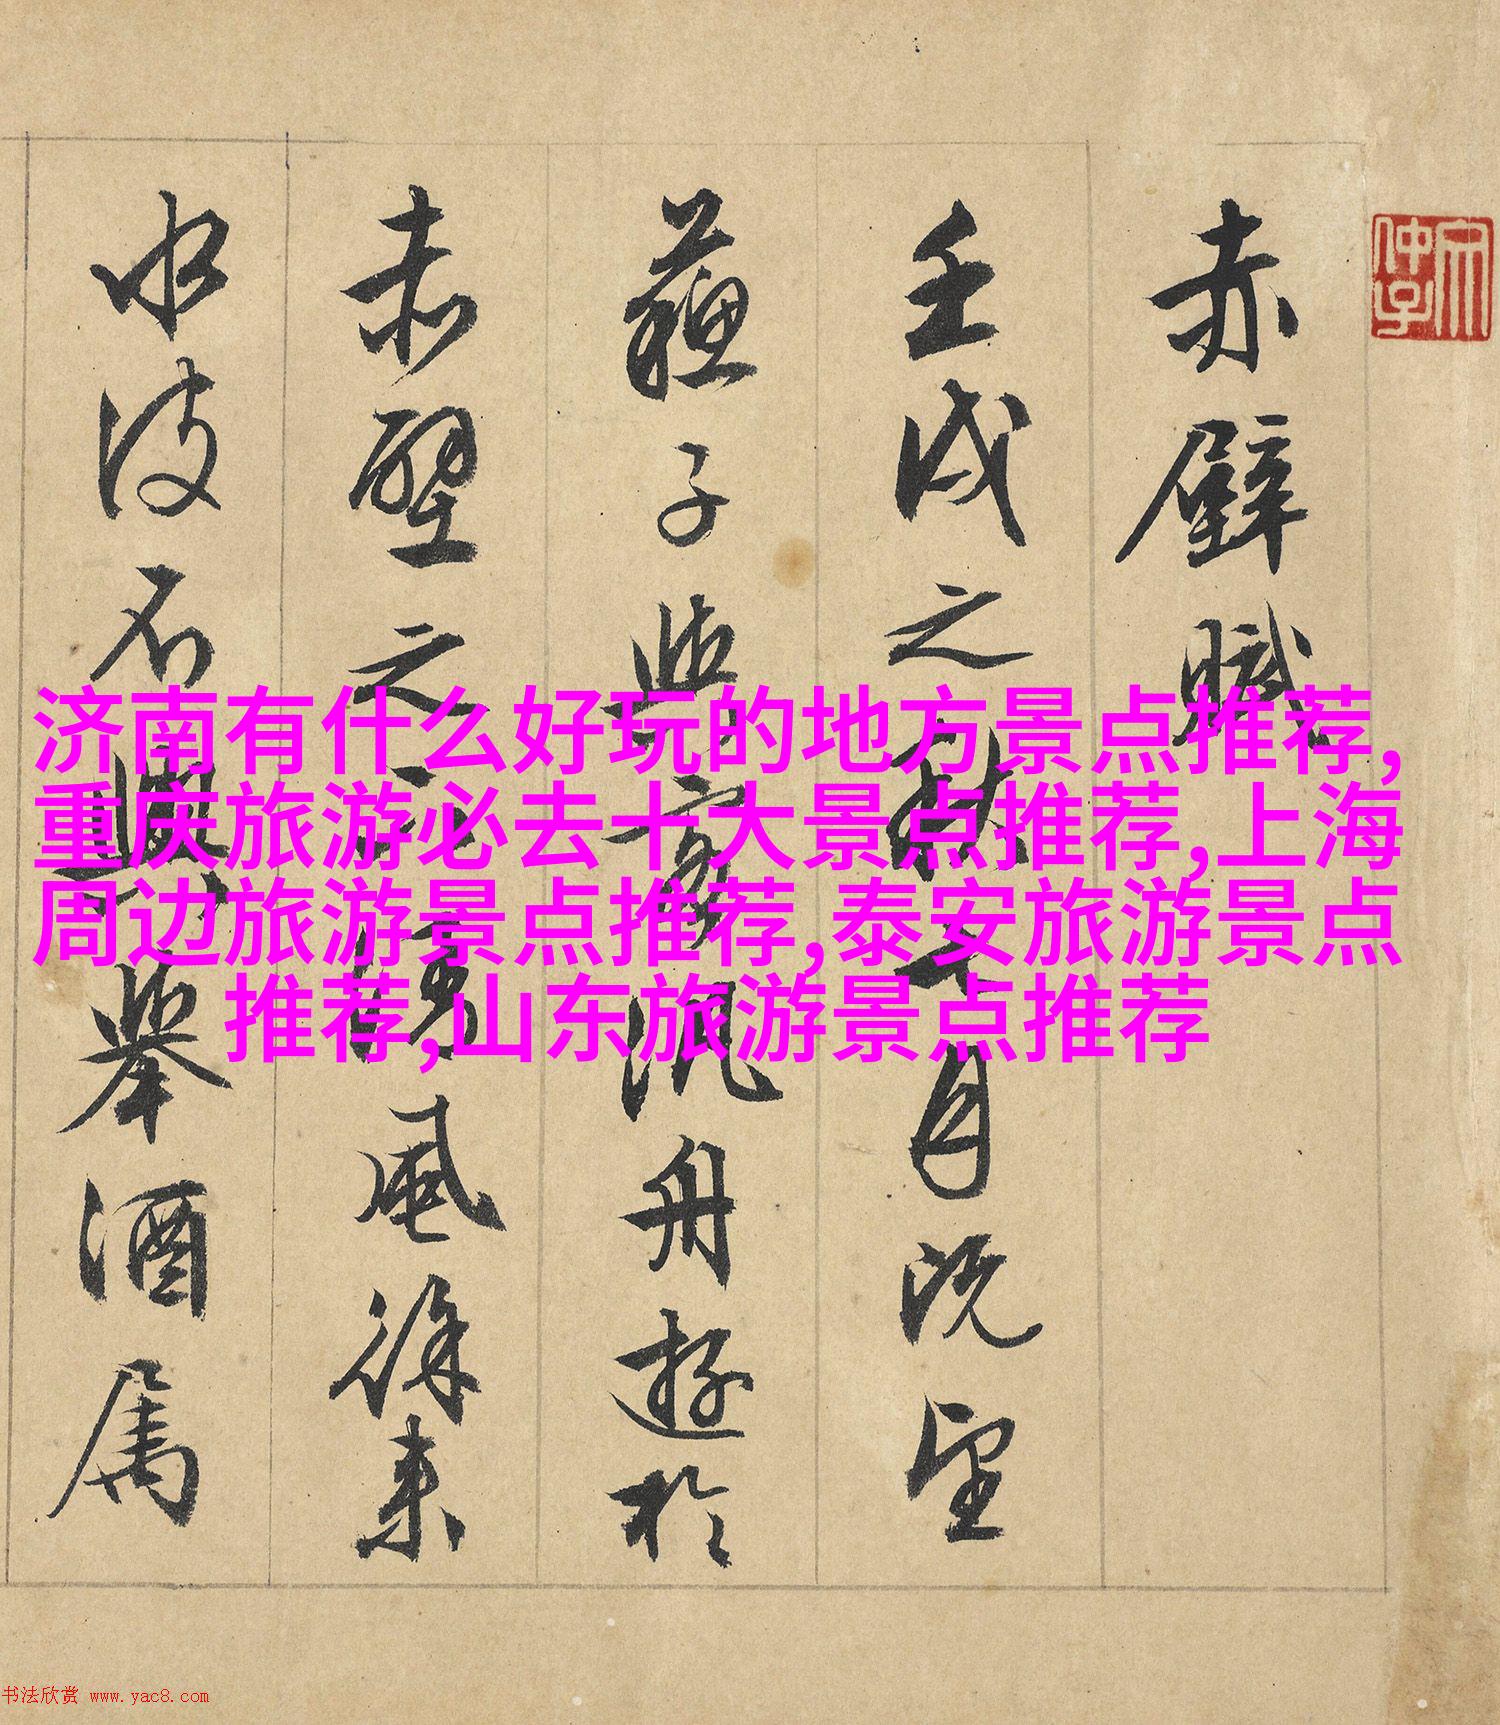 赤壁賦
壬戌之秋七月既望
蘇子與客泛舟遊於
赤壁之下清風徐来
水波不興舉酒属
济南有什么好玩的地方景点推荐,
重庆旅游必去十大景点推荐,上海
周边旅游景点推荐,泰安旅游景点
推荐,山东旅游景点推荐
书法欣赏 www.yac8.com